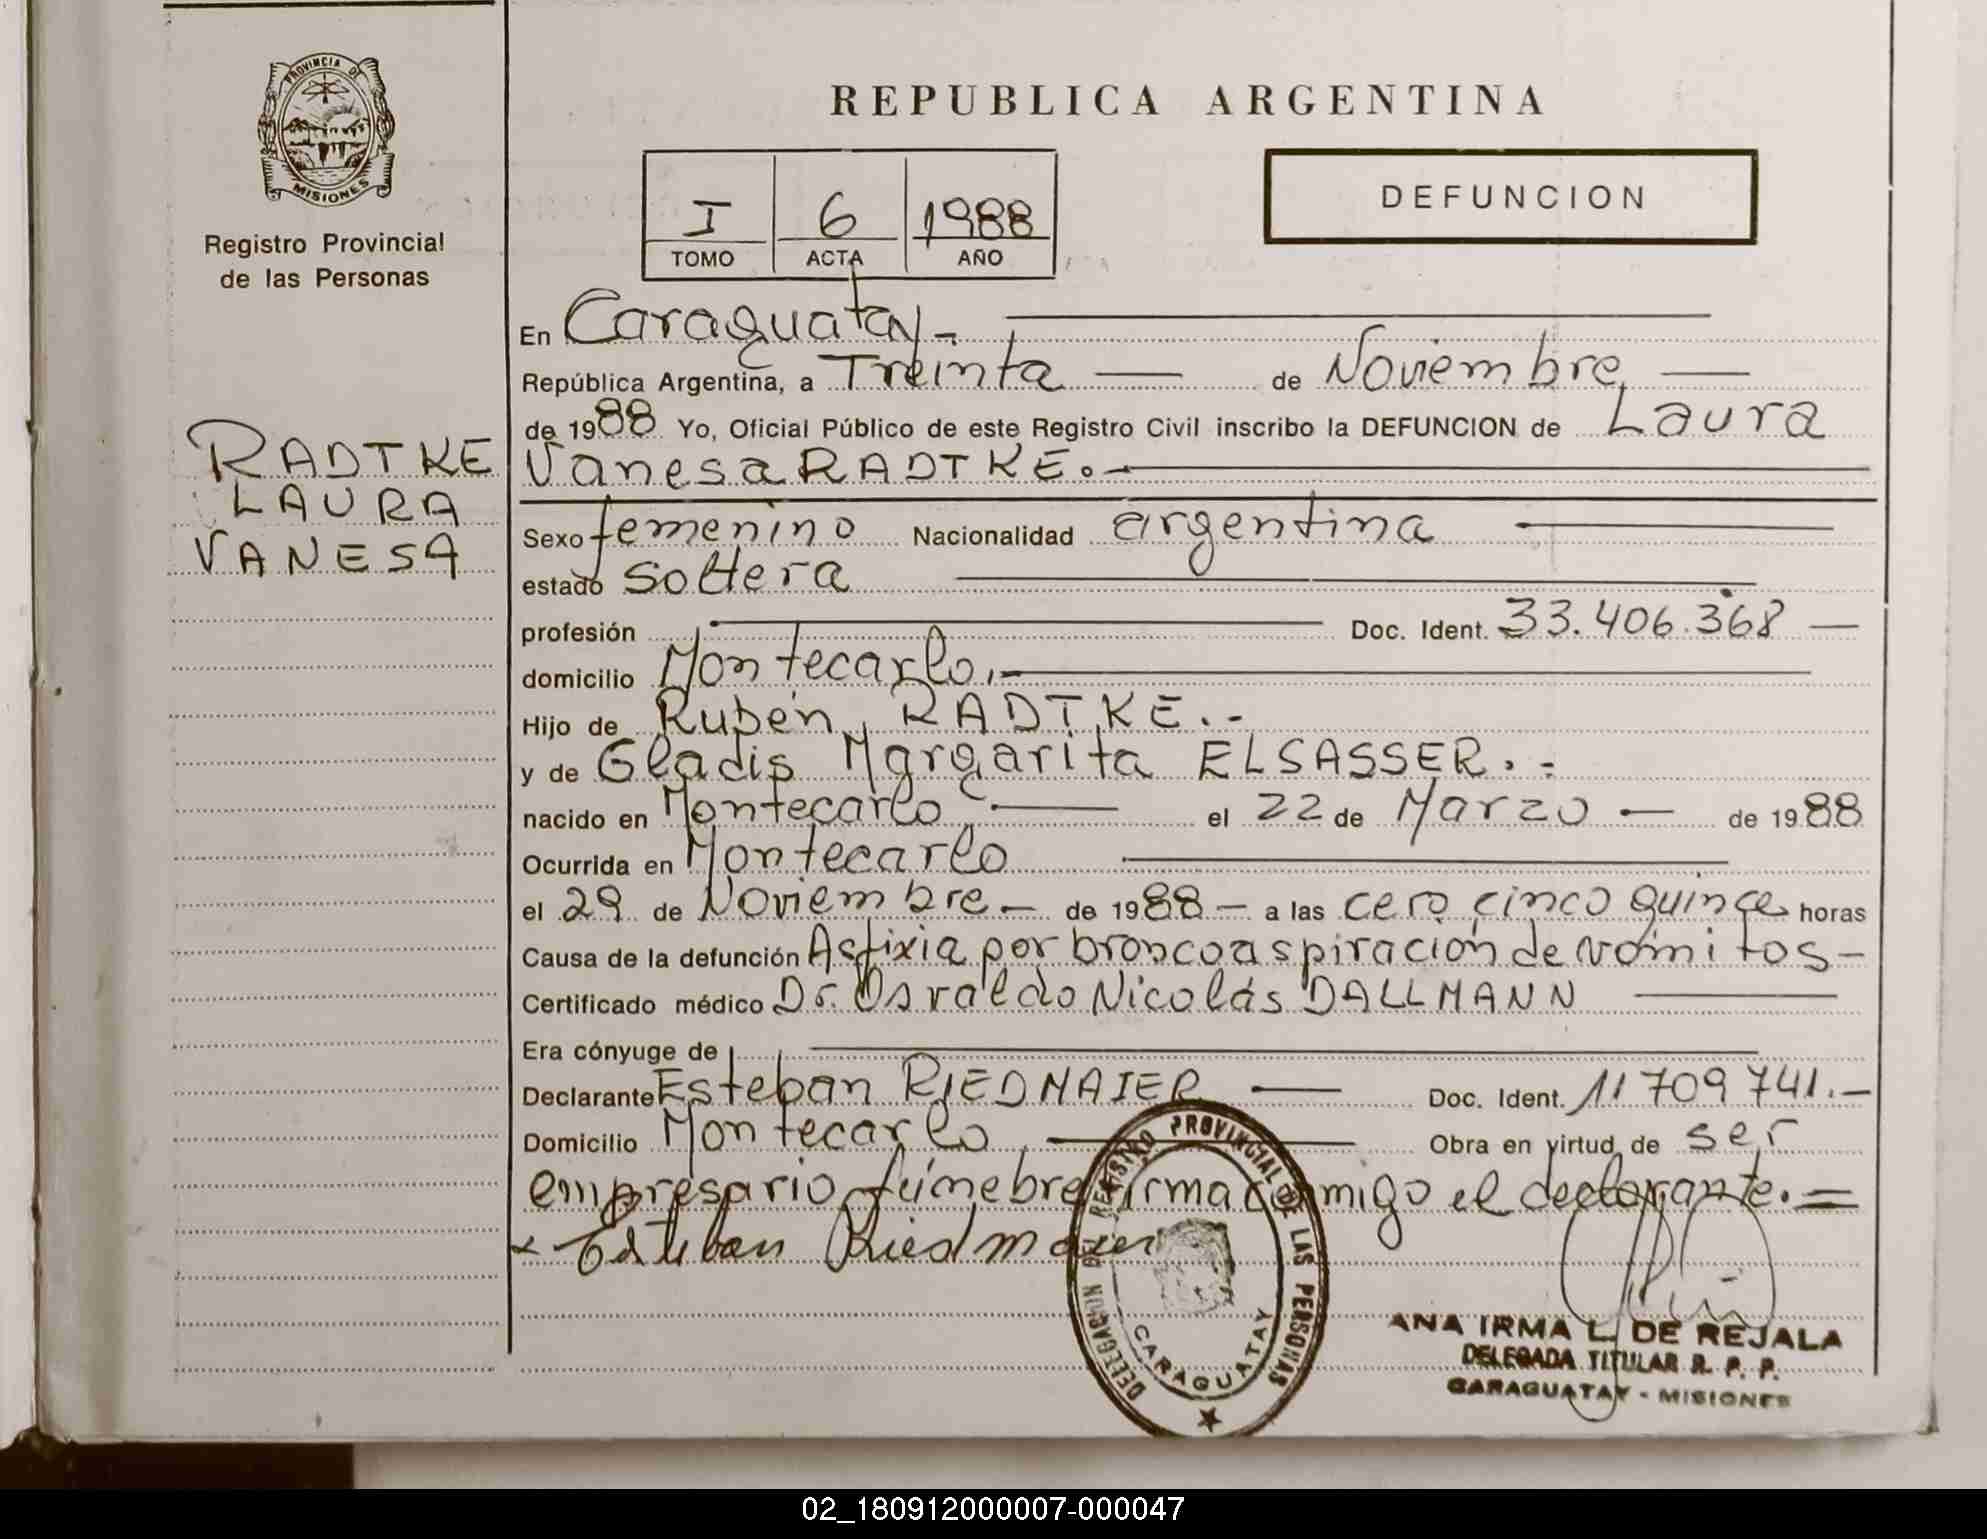 PROVINCIA DE
MISIONES
Registro Provincial
de las Personas
RADTKE
LAURA
VANESA
REPUBLICA ARGENTINA
I 6 1988
TOMO ACTA AÑO
DEFUNCION
En Caraguatay.-
República Argentina, a Treinta — de Noviembre —
de 1988 Yo, Oficial Público de este Registro Civil inscribo la DEFUNCION de Laura
Vanesa RADTKE.-
Sexo femenino Nacionalidad argentina
estado soltera
profesión — Doc. Ident. 33.406.368 —
domicilio Montecarlo.-
Hijo de Rubén RADTKE.-
y de Gladis Margarita ELSASSER.-
nacido en Montecarlo — el 22 de Marzo — de 1988
Ocurrida en Montecarlo
el 29 de Noviembre.- de 1988 — a las cero cinco quince horas
Causa de la defunción Asfixia por broncoaspiración de vómitos-
Certificado médico Dr. Osvaldo Nicolás DALLMANN
Era cónyuge de
Declarante Esteban RIEDMAIER — Doc. Ident. 11709741.-
Domicilio Montecarlo Obra en virtud de ser
empresario fúnebre firma conmigo el declarante.=
x Esteban Riedmaier
DELEGACION DEL REGISTRO PROVINCIAL DE LAS PERSONAS
CARAGUATAY
ANA IRMA L. DE REJALA
DELEGADA TITULAR R. P. P.
CARAGUATAY - MISIONES
02_180912000007-000047